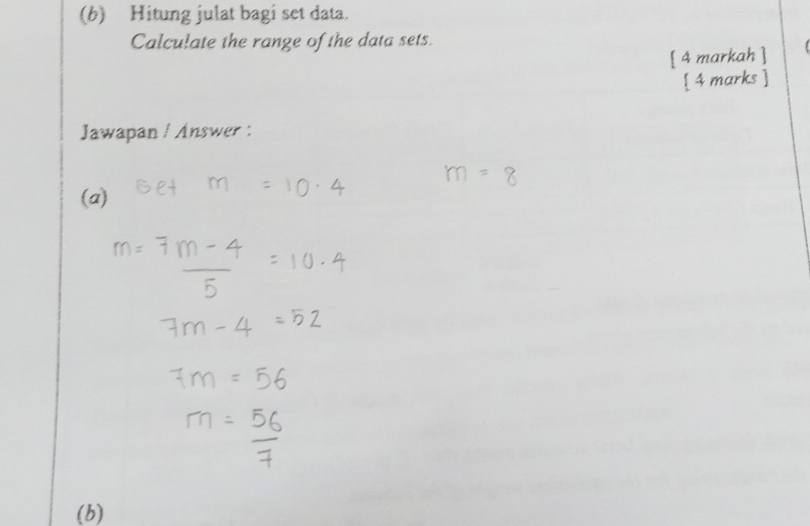 (b) Hitung julat bagi set data.
Calculate the range of the data sets.
[ 4 markah ]
[ 4 marks ]
Jawapan / Answer :
(a) Set m = 10.4 m = 8
m = 7m - 4 / 5 = 10.4
7m - 4 = 52
7m = 56
m = 56 / 7
(b)